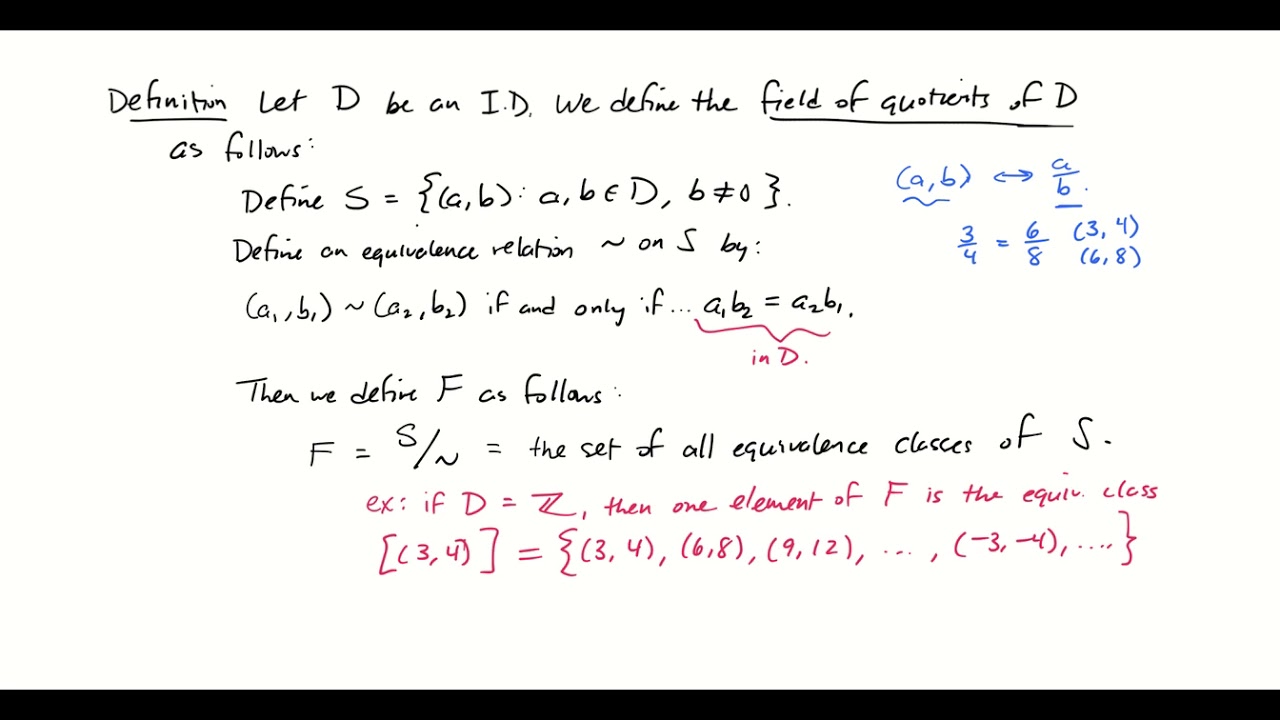 Definition Let D be an I.D. We define the field of quotients of D
as follows:
Define S = {(a,b): a,b ∈ D, b ≠ 0}.
(a,b) ↔ a/b.
3/4 = 6/8 (3,4)
(6,8)
Define an equivalence relation ~ on S by:
(a₁,b₁) ~ (a₂,b₂) if and only if ... a₁b₂ = a₂b₁.
in D.
Then we define F as follows:
F = S/~ = the set of all equivalence classes of S.
ex: if D = ℤ, then one element of F is the equiv. class
[(3,4)] = {(3,4), (6,8), (9,12), ..., (-3,-4), ....}